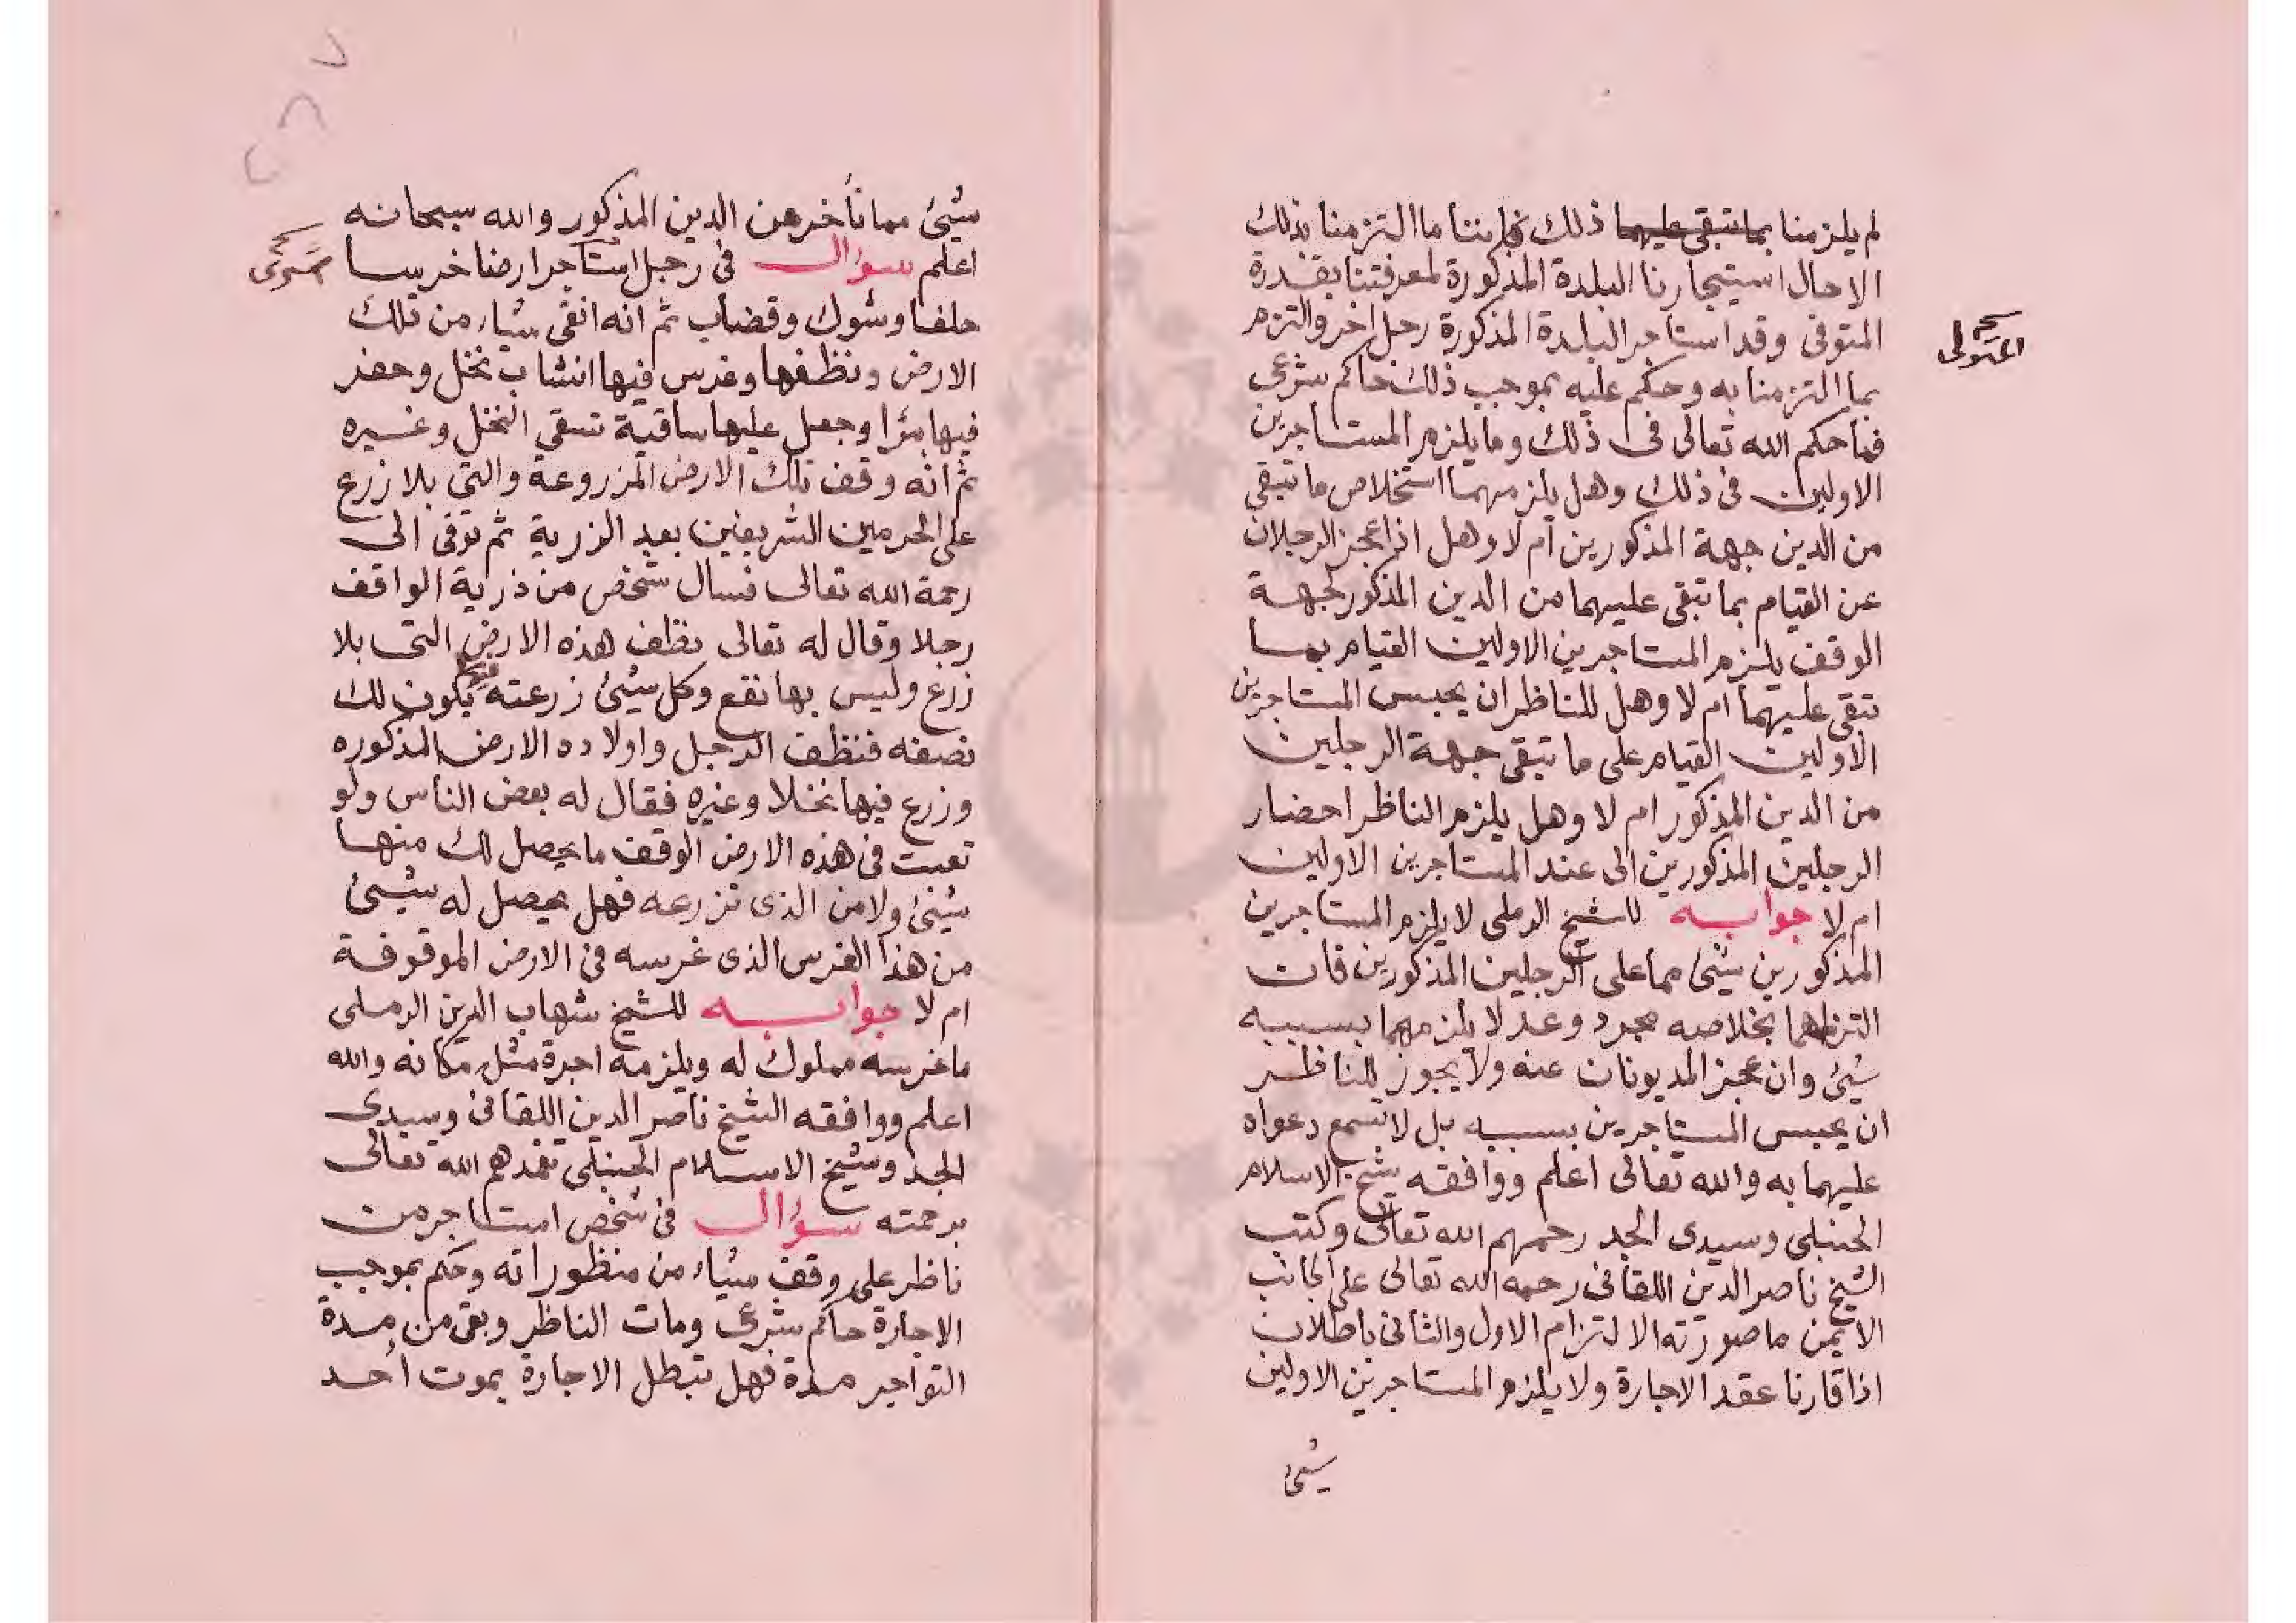 لم يلزمنا بما تبقى عليهما ذلك فاننا ما التزمنا بذلك
الا حال استيجارنا البلدة المذكورة لمعرفتنا بقدرة
المتوفى وقد استاجر البلدة المذكورة رجل اخر والتزم
بما التزمنا به وحكم عليه بموجب ذلك حاكم شرعى
فما حكم الله تعالى فى ذلك وما يلزم المستاجرين
الاولين فى ذلك وهل يلزمهما استخلاص ما تبقى
من الدين جهة المذكورين ام لا وهل اذا عجز الرجلان
عن القيام بما تبقى عليهما من الدين المذكور لجهة
الوقف يلزم المستاجرين الاولين القيام بما
تبقى عليهما ام لا وهل للناظر ان يحبس المستاجرين
الاولين القيام على ما تبقى جهة الرجلين
من الدين المذكور ام لا وهل يلزم الناظر احضار
الرجلين المذكورين الى عند المستاجرين الاولين
ام لا جوابه للشيخ الرملى لا يلزم المستاجرين
المذكورين شيئ مما على الرجلين المذكورين فان
التزامهما بخلاصه مجرد وعد لا يلزمهما بسببه
شيئ وان عجز المديونان عنه ولا يجوز للناظر
ان يحبس المستاجرين بسببه بل لا تسمع دعواه
عليهما به والله تعالى اعلم ووافقه شيخ الاسلام
الحنبلى وسيدى الجد رحمهم الله تعالى وكتب
الشيخ ناصر الدين اللقانى رحمه الله تعالى على الجانب
الايمن ما صورته الالتزام الاول والثانى باطلان
اذا قارنا عقد الاجارة ولا يلزم المستاجرين الاولين
شيئ
شيئ مما تأخر من الدين المذكور والله سبحانه
اعلم سؤال فى رجل استاجر ارضا خرسا
حلفا وشوك وقضاب ثم انه انقى شياء من تلك
الارض ونظفها وغرس فيها انشاب نخل وحفر
فيها بئرا وجعل عليها ساقية تسقي النخل وغيره
ثم انه وقف تلك الارض المزروعة والتى بلا زرع
على الحرمين الشريفين بعد الزرية ثم توفى الى
رحمة الله تعالى فسال شخص من ذرية الواقف
رجلا وقال له تعالى نظف هذه الارض التى بلا
زرع وليس بها نفع وكل شيئ زرعته فيها يكون لك
نصفه فنظف الرجل واولاده الارض المذكوره
وزرع فيها نخلا وغيره فقال له بعض الناس ولو
تعبت فى هذه الارض الوقف ما يحصل لك منها
شيئ ولا من الذى تزرعه فهل يحصل له شيئ
من هذا الغرس الذى غرسه فى الارض الموقوفة
ام لا جوابه للشيخ شهاب الدين الرملى
ما غرسه مملوك له ويلزمه اجرة مثل مكانه والله
اعلم ووافقه الشيخ ناصر الدين اللقانى وسيدى
الجد وشيخ الاسلام الحنبلى تغمدهم الله تعالى
برحمته سؤال فى شخص استاجر من
ناظر على وقف شياء من منظوراته وحكم بموجب
الاجارة حاكم شرعى ومات الناظر وبقى من مدة
التواجر مدة فهل تبطل الاجارة بموت أحد